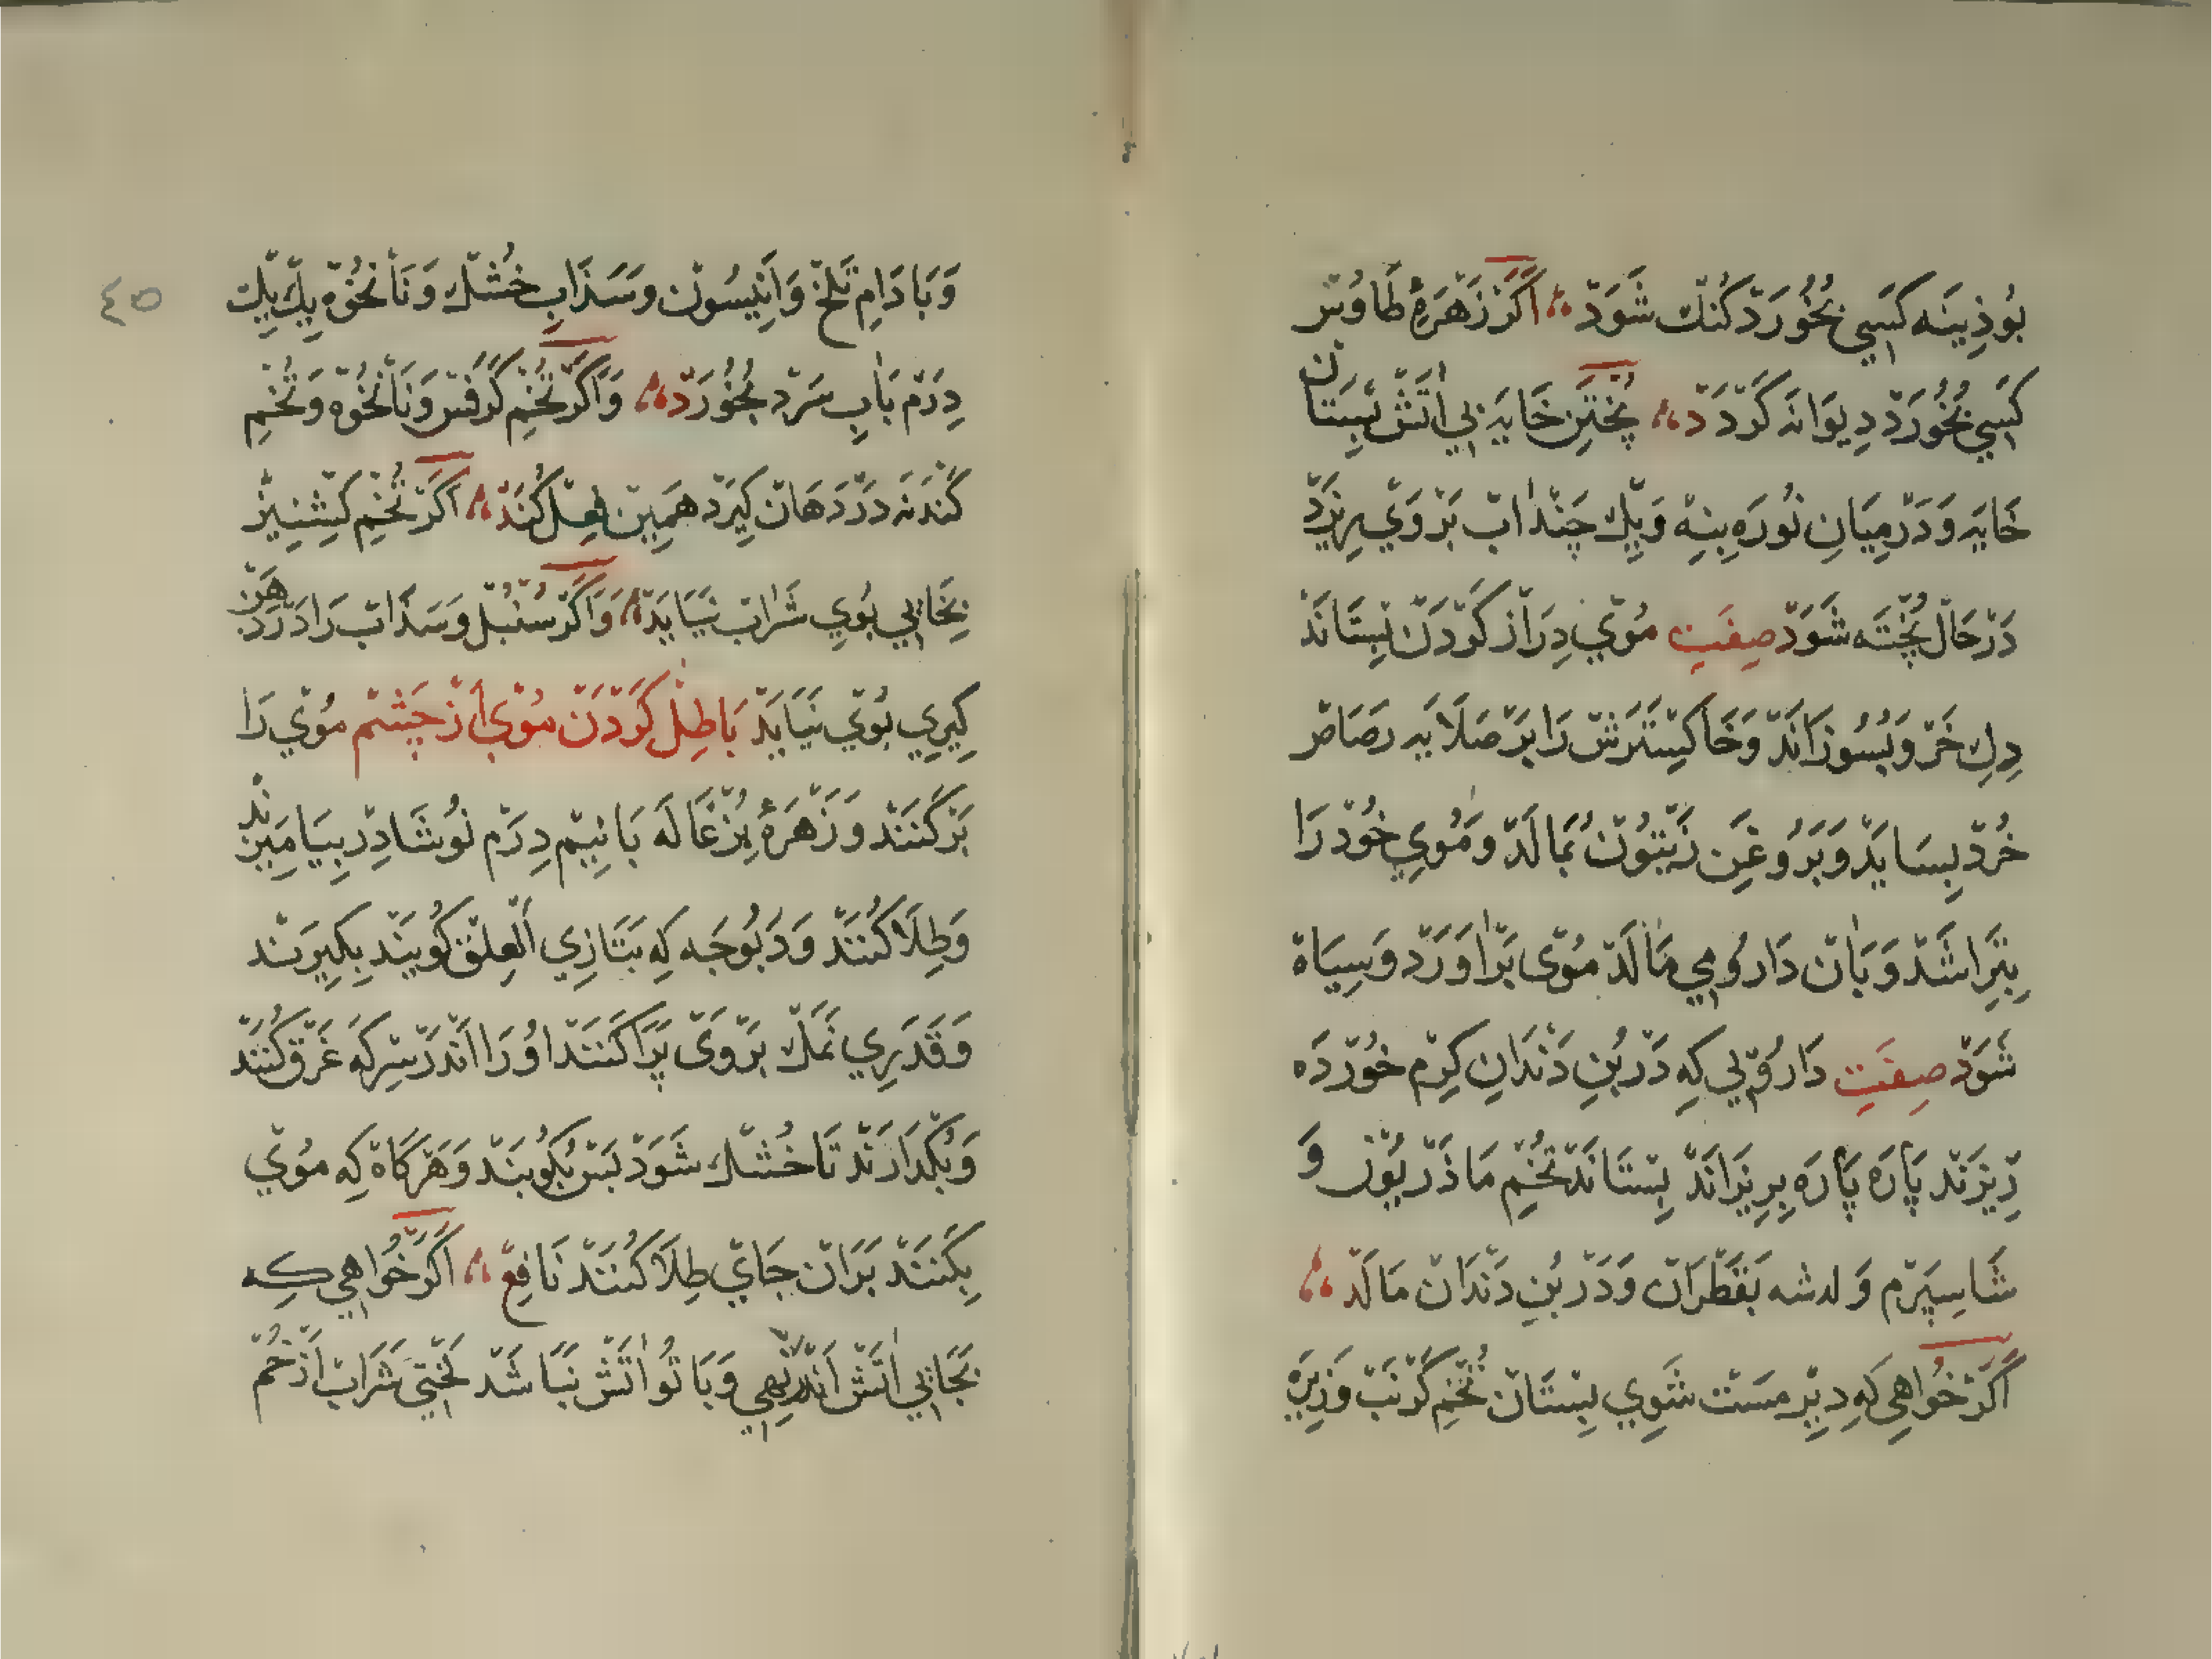 بُوذِينَه كَسِي بُخُورَدْ كُنْك شَوَدْ اَكَرْ زَهْرَۀِ طَاوُسْ
كَسِي بُخُورَدْ دِيوَانَه كَرْدَدْ پُخْتَنِ خَايَه بِي اٰتَشْ بِسِتَانْ
خَايَه وَ دَرْ مِيَانِ نُورَه بِنِهْ وَ يِكْ چَنْد اٰبْ بَرْ وَيْ بِرِيزْ
دَرْ حَالْ پُخْتَه شَوَدْ صِفَتِ مُوْيْ دِرَازْ كَرْدَنْ بِسِتَانَدْ
دِلِ خَرْ وَ بُسُوزَانَدْ وَ خَاكِسْتَرَشْ رَا بَرْ صَلَايَه رَصَاصْ
خُرْدْ بِسَايَدْ وَ بَرُوغَنِ زَيْتُونْ بُمَالَدْ وَ مُويِ خُودْ رَا
بِتَرَاشَدْ وَ بَاٰنْ دَارُو مِي مَالَدْ مُوْيْ بَرْاٰوَرَدْ وَ سِيَاهْ
شَوَدْ صِفَتِ دَارُوْيِي كِه دَرْ بُنِ دَنْدَانِ كِرْم خُورْدَه
رِيزَنْد پَارَه پَارَه بِرِيزَانَدْ بِسْتَانَدْ تُخْمِ مَاذَرْيُوْن وَ
شَاسِپَرْم وَ لدشه بَقَطْرَانْ وَ دَرْ بُنِ دَنْدَانْ مَالَدْ
اَكَرْ خُوَاهِي كِه دِيرْ مَسْت شَوِي بِسْتَانْ تُخْمِ كَرَنْبْ وَ زِيرَه
٤٥
وَ بَادَامِ تَلْخْ وَ اَنِيسُونْ وَ سَذَابِ خُشْك وَ نَانْخُوَه يِكْ يِكْ
دِرَمْ بَاٰبِ سَرْد بُخُورَدْ وَ اَكَرْ تُخْمِ كَرَفْسْ وَ نَانْخُوَه وَ تُخْمِ
كَنْدَنَه دَرْ دَهَانْ كِيرَدْ هَمِينْ فِعْلْ كُنَدْ اَكَرْ تُخْمِ كِشْنِيزْ
بِخَايِي بُوِي شَرَابْ نَيَايَدْ وَ اَكَرْ سُنْبُلْ وَ سَذَابْ رَا دَرْ دَهَنْ
كِيرِي بُوْيْ نَيَايَدْ بَاطِلْ كَرْدَنْ مُوْيْ اَزْ چَشْمْ مُوْيْ رَا
بَرْ كَنَنْد وَ زَهْرَۀِ بُزْغَالَه بَا نِيمْ دِرَمْ نُوشَادِرْ بِيَامِيزَنْد
وَ طِلَا كُنَنْد وَ دَبُوجَه كِه بَتَازِي اَلْعِلْقْ كُويَنْد بِكِيرَنْد
وَ قَدَرِي نَمَكْ بَرْ وَيْ پَرَاكَنَنْد اُو رَا اَنْدَرْ سِرْكَه غَرْق كُنَنْد
وَ بُكْذَارَنْدْ تَا خُشْك شَوَدْ بَسْ بُكُوبَنْد وَ هَرْ كَاهْ كِه مُوْيْ
بِكَنَنْد بَرَاٰنْ جَايْ طِلَا كُنَنْد نَافِعْ اَكَرْ خُوَاهِي كِه
بَجَايِي اٰتَشْ اَنْدَرْ نِهِي وَ بَا تُو اٰتَشْ نَبَاشَدْ لَخْتِي شَرَابْ اَزْ خُمْ